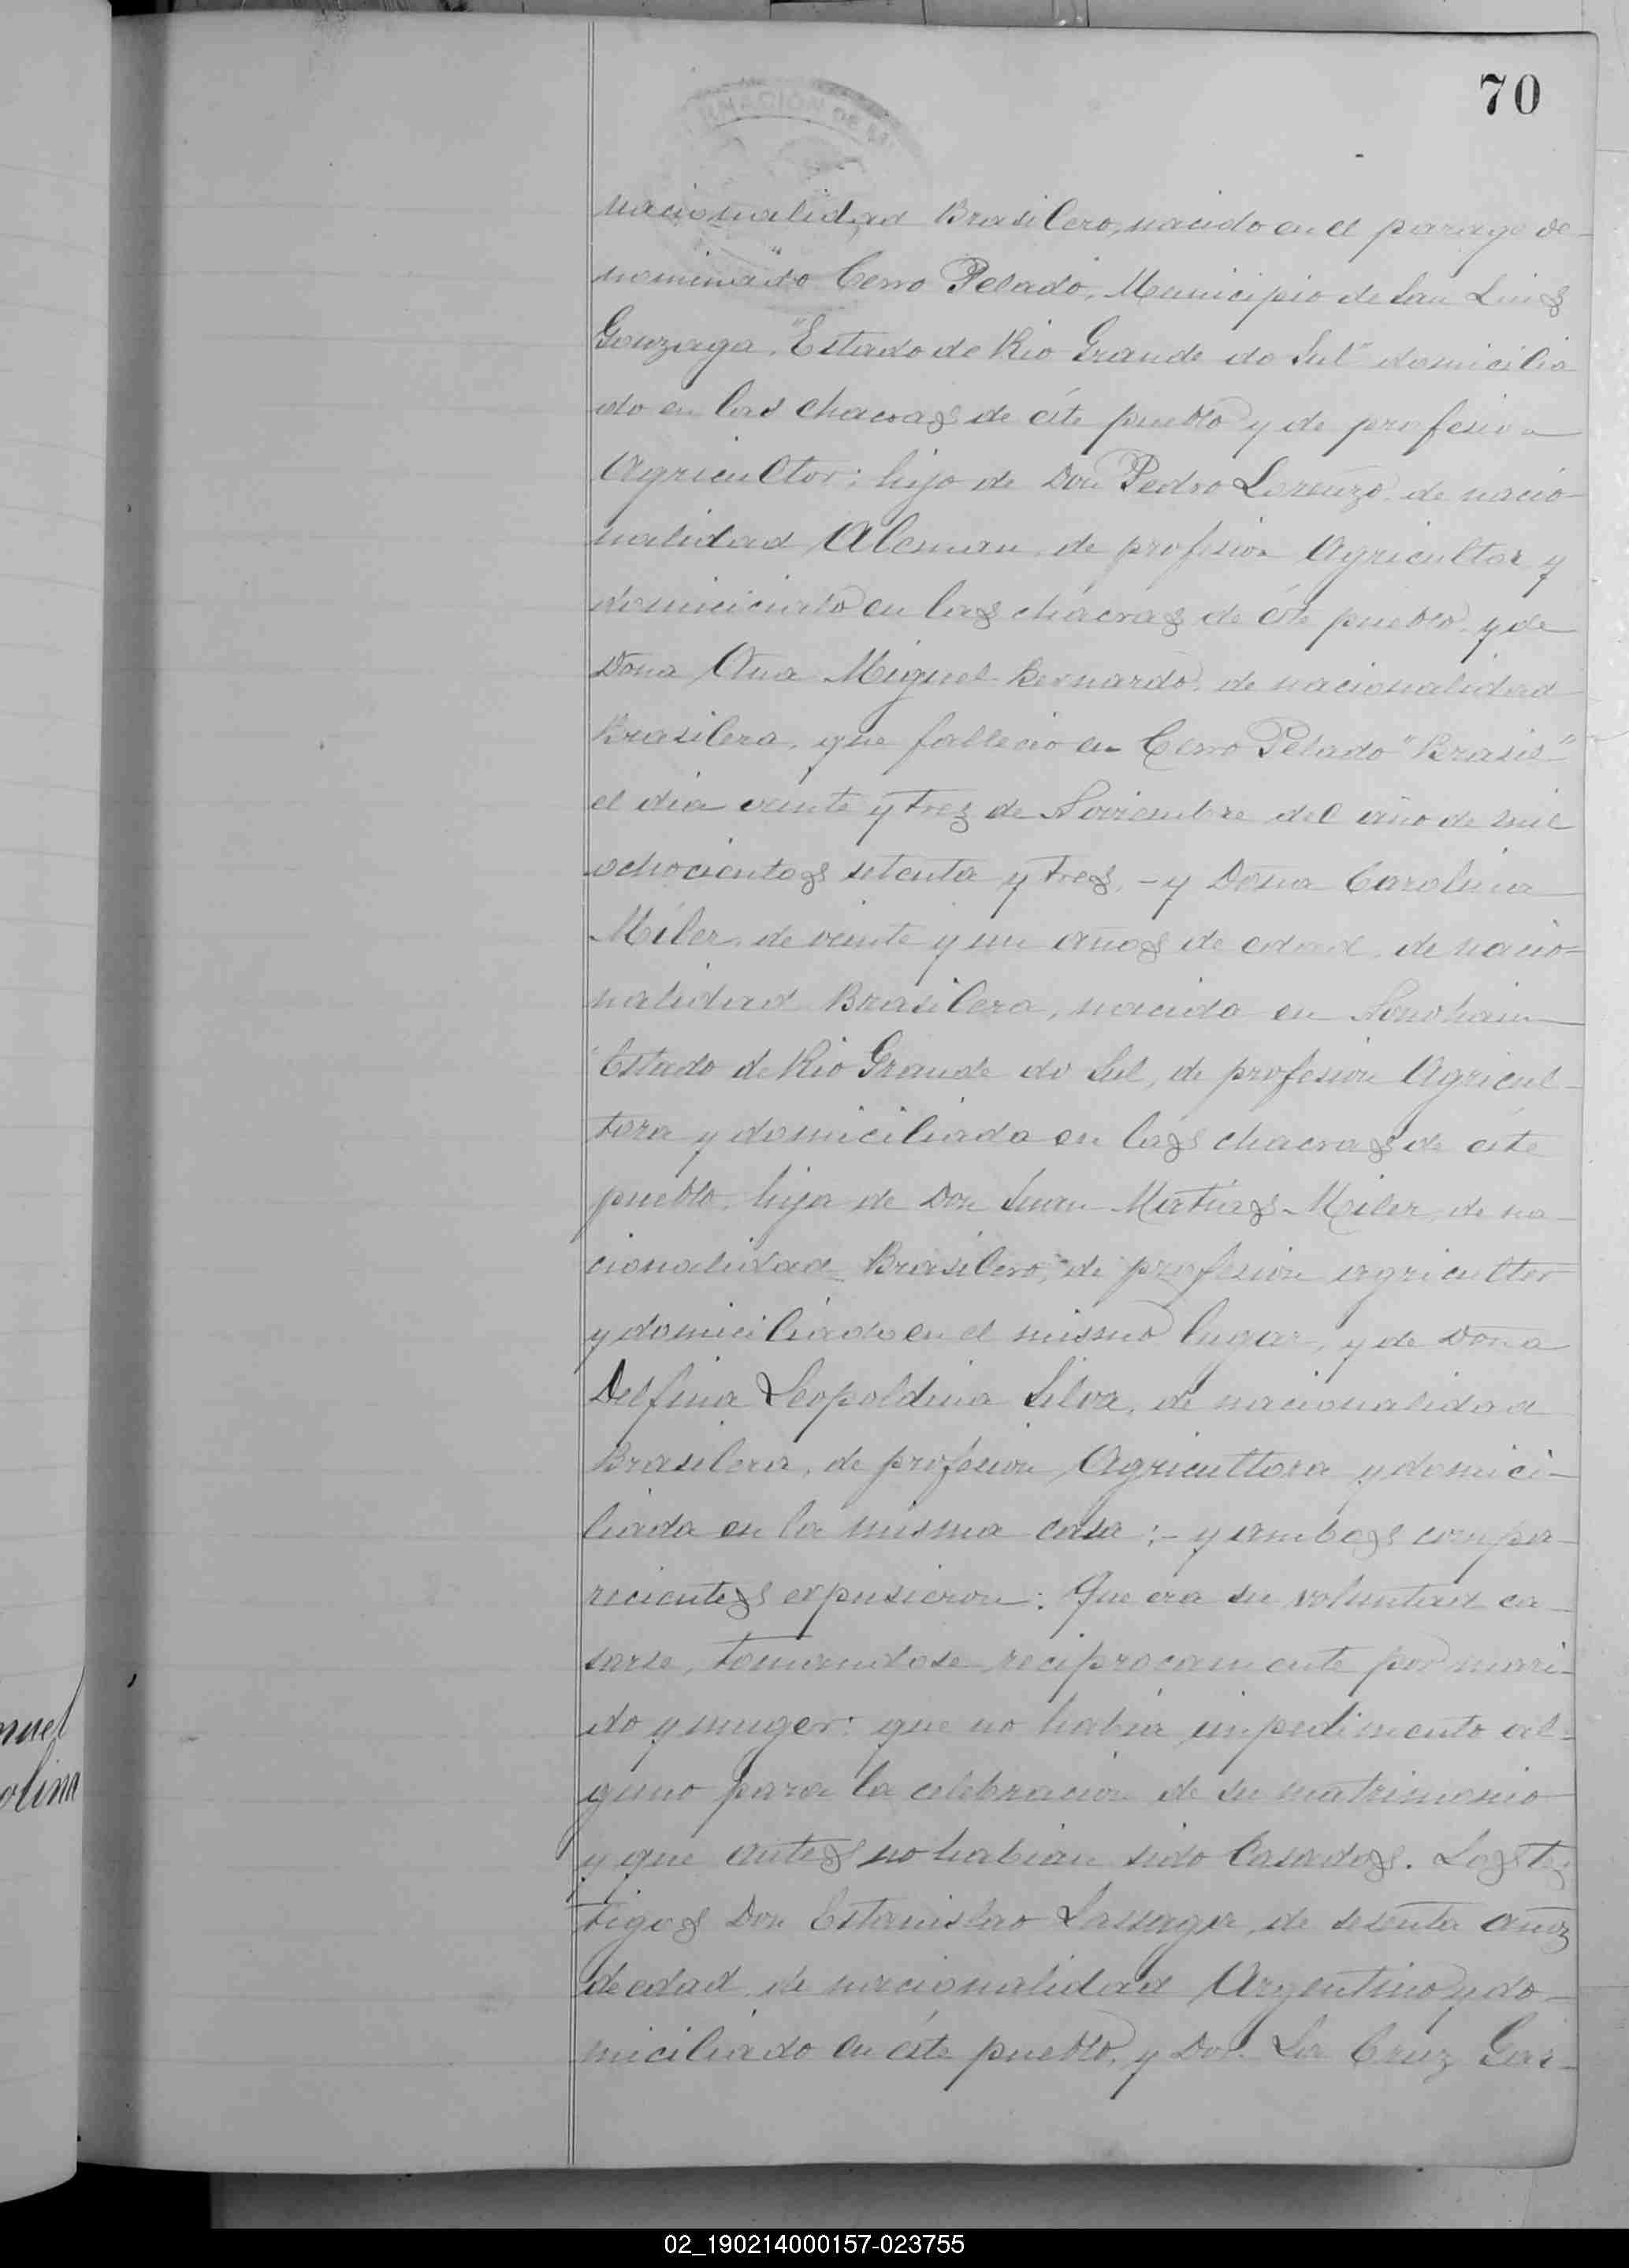 70
NACION DE
nacionalidad Brasilero, nacido en el parage de-
nominado Cerro Pelado, Municipio de San Luis
Gonzaga, "Estado de Rio Grande do Sul" domicilia
do en las chacras de éste pueblo y de profesion
Agricultor; hijo de Don Pedro Lorenzo, de nacio-
nalidad Aleman, de profesion Agricultor y
domiciciado en las chácras de éste pueblo y de
Doña Ana Miguel Bernardo, de nacionalidad
Brasilera, que fallecio en Cerro Pelado "Brasil"
el dia veinte y tres de Noviembre del año de mil
ochocientos setenta y tres, - y Doña Carolina
Miler, de veinte y un años de edad, de nacio=
nalidad Brasilera, nacida en
Estado de Rio Grande do Sul, de profesion Agricul-
tora y domiciliada en las chacras de éste
pueblo, hija de Don Juan Matias Miler, de na-
cionalidad Brasilero, de profesion agricultor
y domiciliado en el mismo lugar, y de Doña
Delfina Leopoldina Silva, de nacionalidad
Brasilera, de profesion Agricultora y domici-
liada en la misma casa; - y ambos compa-
recientes expusieron: Que era su voluntad ca-
sarse, tomandose reciprocamente por mari-
do y muger: que no habia impedimento al-
guno para la celebracion de su matrimonio
y que antes no habian sido Casados. Los tes
tigos Don Estanislao Lassaga, de sesenta años
de edad, de nacionalidad Argentino y do-
miciliado en éste pueblo, y Don La Cruz Gar-
nuel
olina
02_190214000157-023755